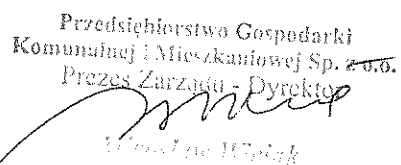 Przedsiębiorstwo Gospodarki
Komunalnej i Mieszkaniowej Sp. z o.o.
Prezes Zarządu - Dyrektor